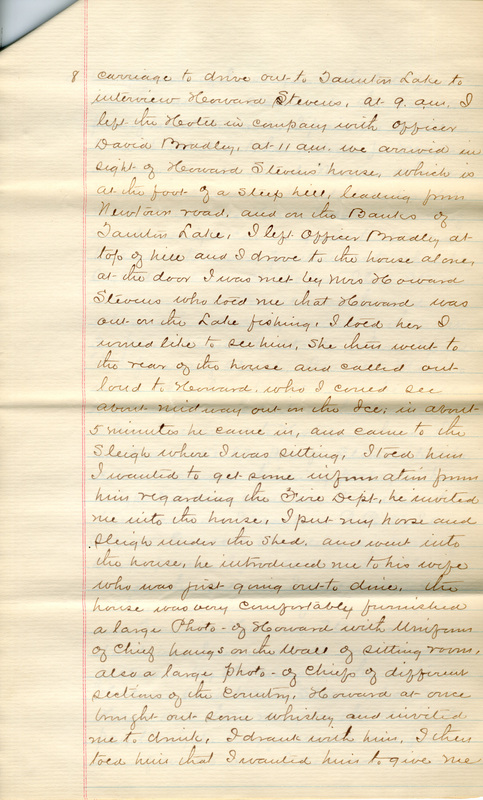 8 carriage to drive out to Taunton Lake to
interview Howard Stevens, at 9. am. I
left the Hotel in company with officer
David Bradley, at 11 am. we arrived in
sight of Howard Stevens' house, which is
at the foot of a steep hill, leading from
Newtown road, and on the Banks of
Taunton Lake, I left Officer Bradley at
top of hill and I drove to the house alone,
at the door I was met by Mrs Howard
Stevens who toed me that Howard was
out on the Lake fishing, I toed her I
woued like to see him, she then went to
the rear of the house and called out
loud to Howard. who I coued see
about midway out on the Ice; in about
5 minutes he came in, and came to the
Sleigh where I was sitting, I toed him
I wanted to get some information from
him regarding the Fire Dept, he invited
me into the house, I put my horse and
sleigh under the shed, and went into
the house, he introduced me to his wife
who was just going out to dine, the
house was very comfortably furnished
a large Photo - of Howard with Uniform
of Chief hangs on the Wall of sitting room,
also a large photo - of Chiefs of different
sections of the Country, Howard at once
brought out some whiskey and invited
me to drink, I drank with him, I then
toed him that I wanted him to give me